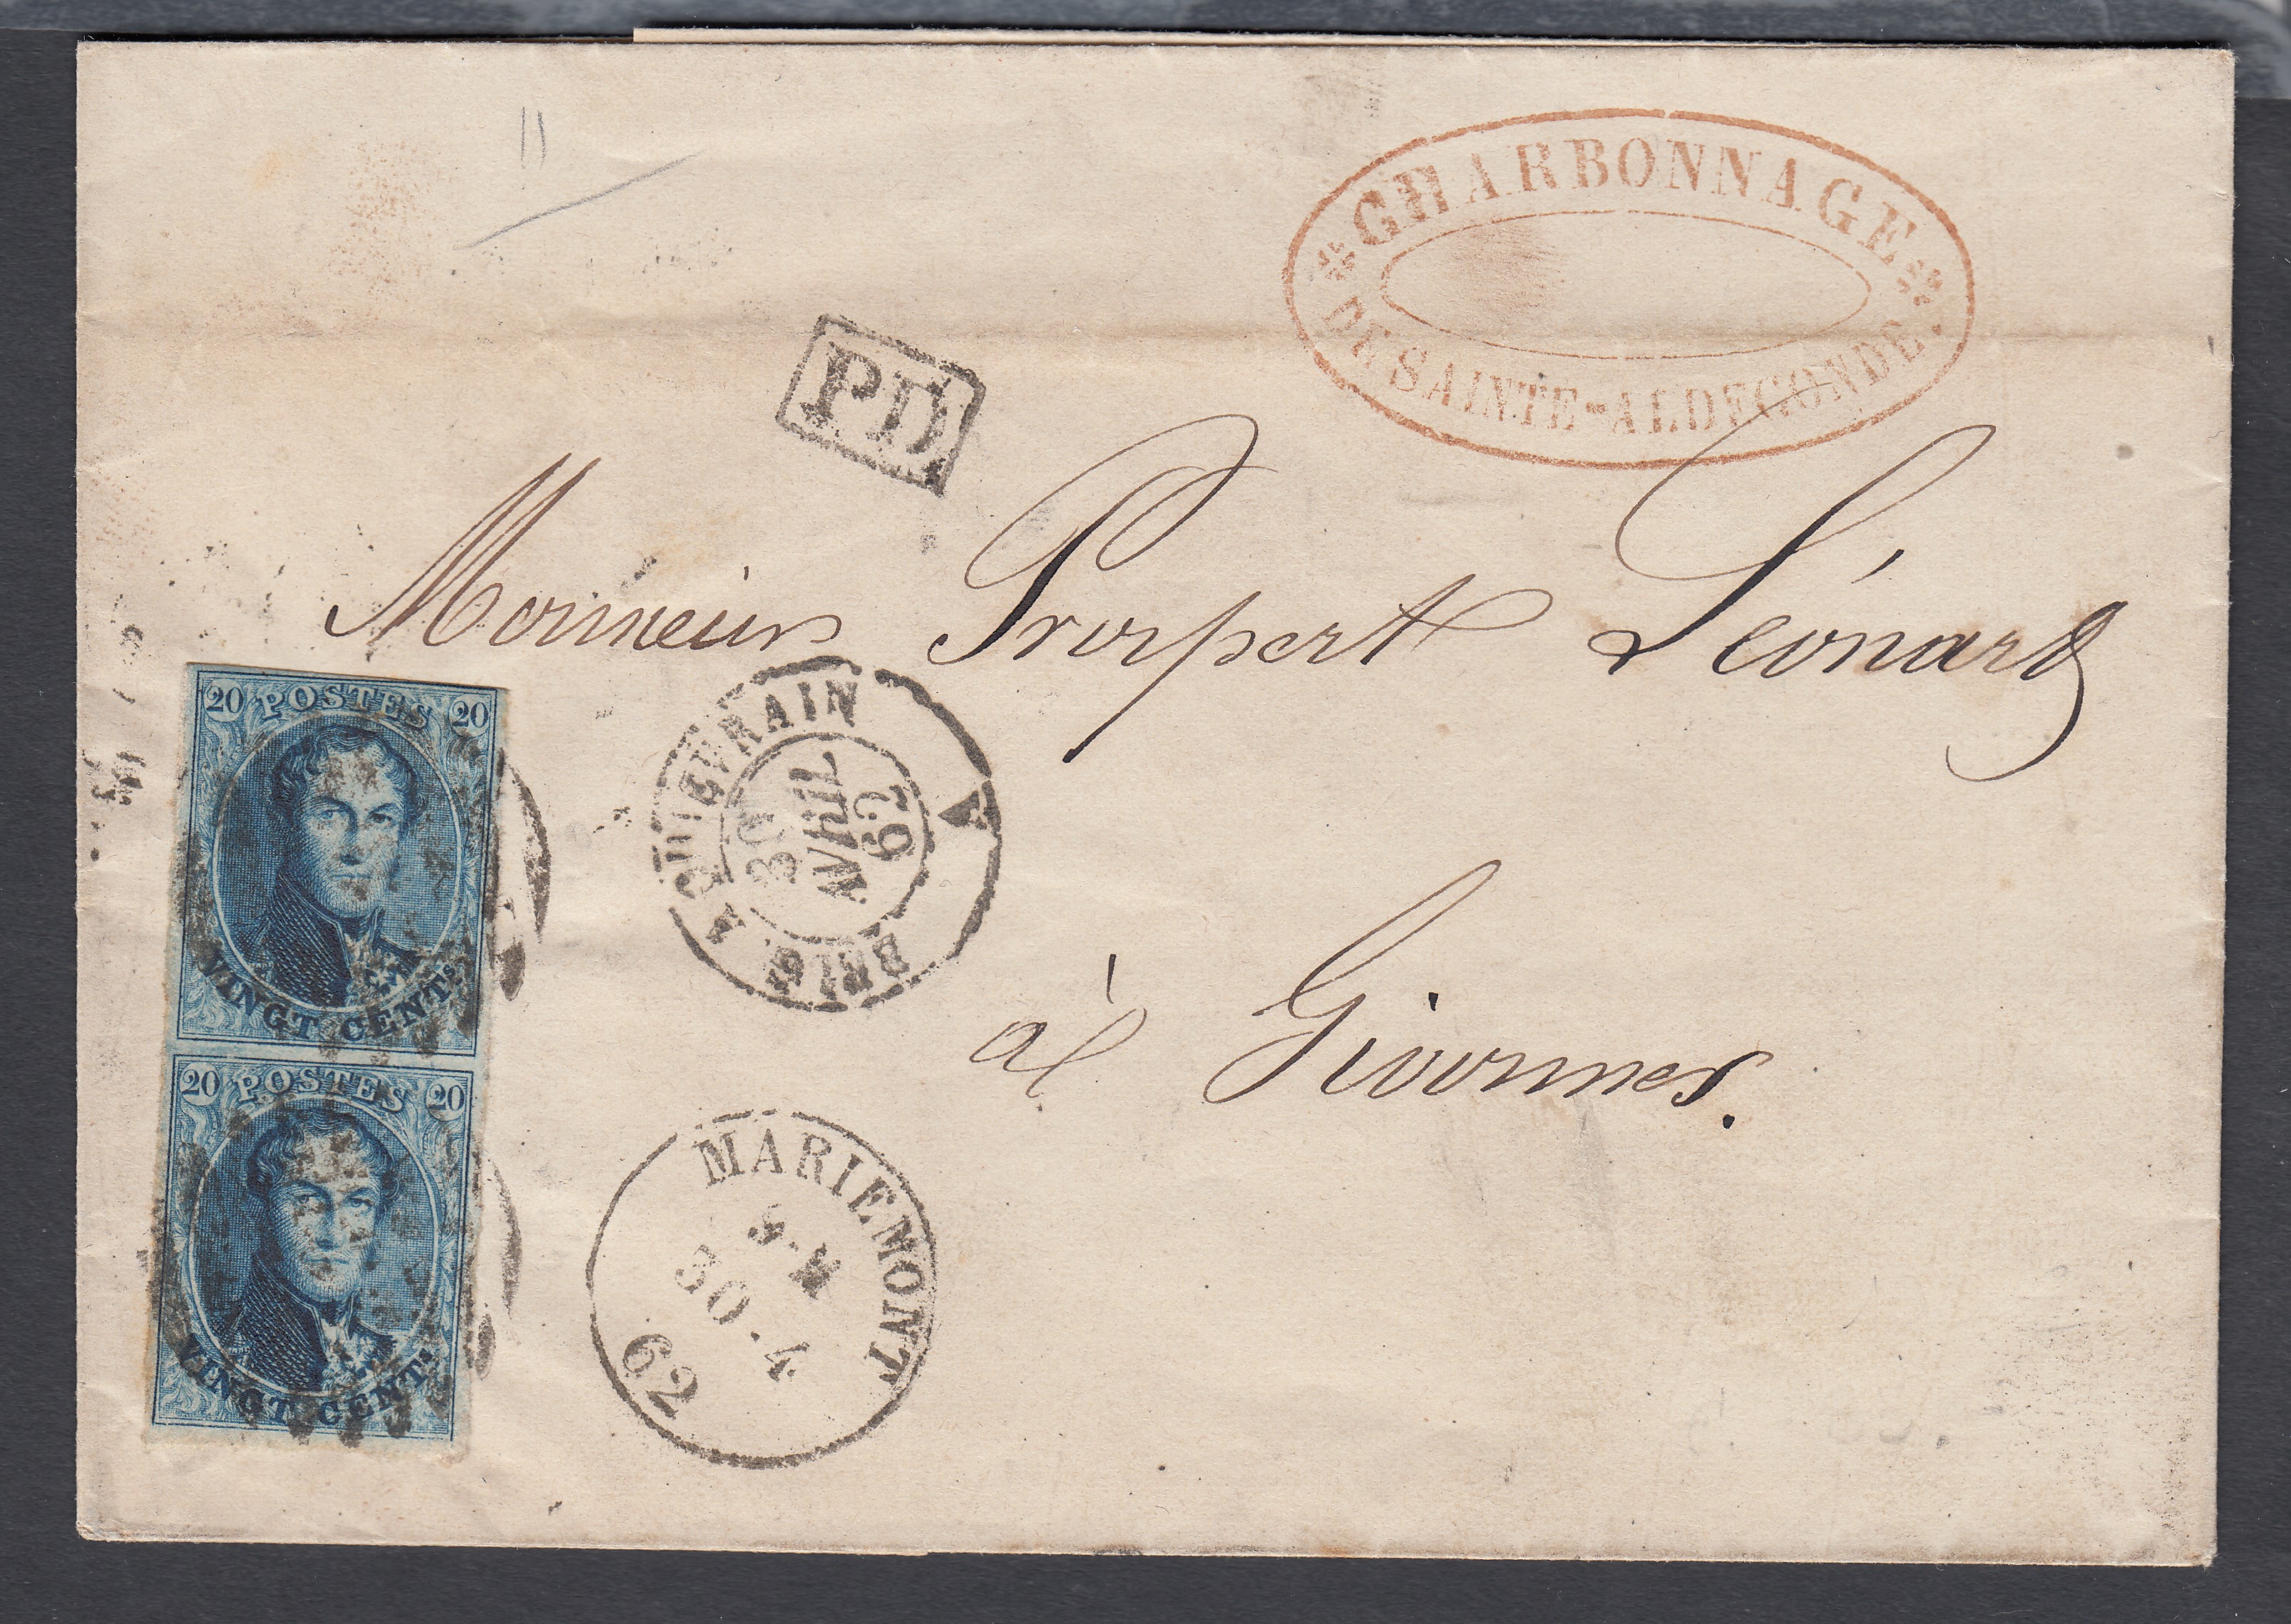 CHARBONNAGE
DE SAINTE-ALDEGONDE.
PD
Monsieur Prospert Léonard
20 POSTES 20
VINGT CENTS
BELG. A QUIEVRAIN
30
AVRIL
62
A
à Givonnes.
20 POSTES 20
VINGT CENTS
MARIEMONT
30.4
62